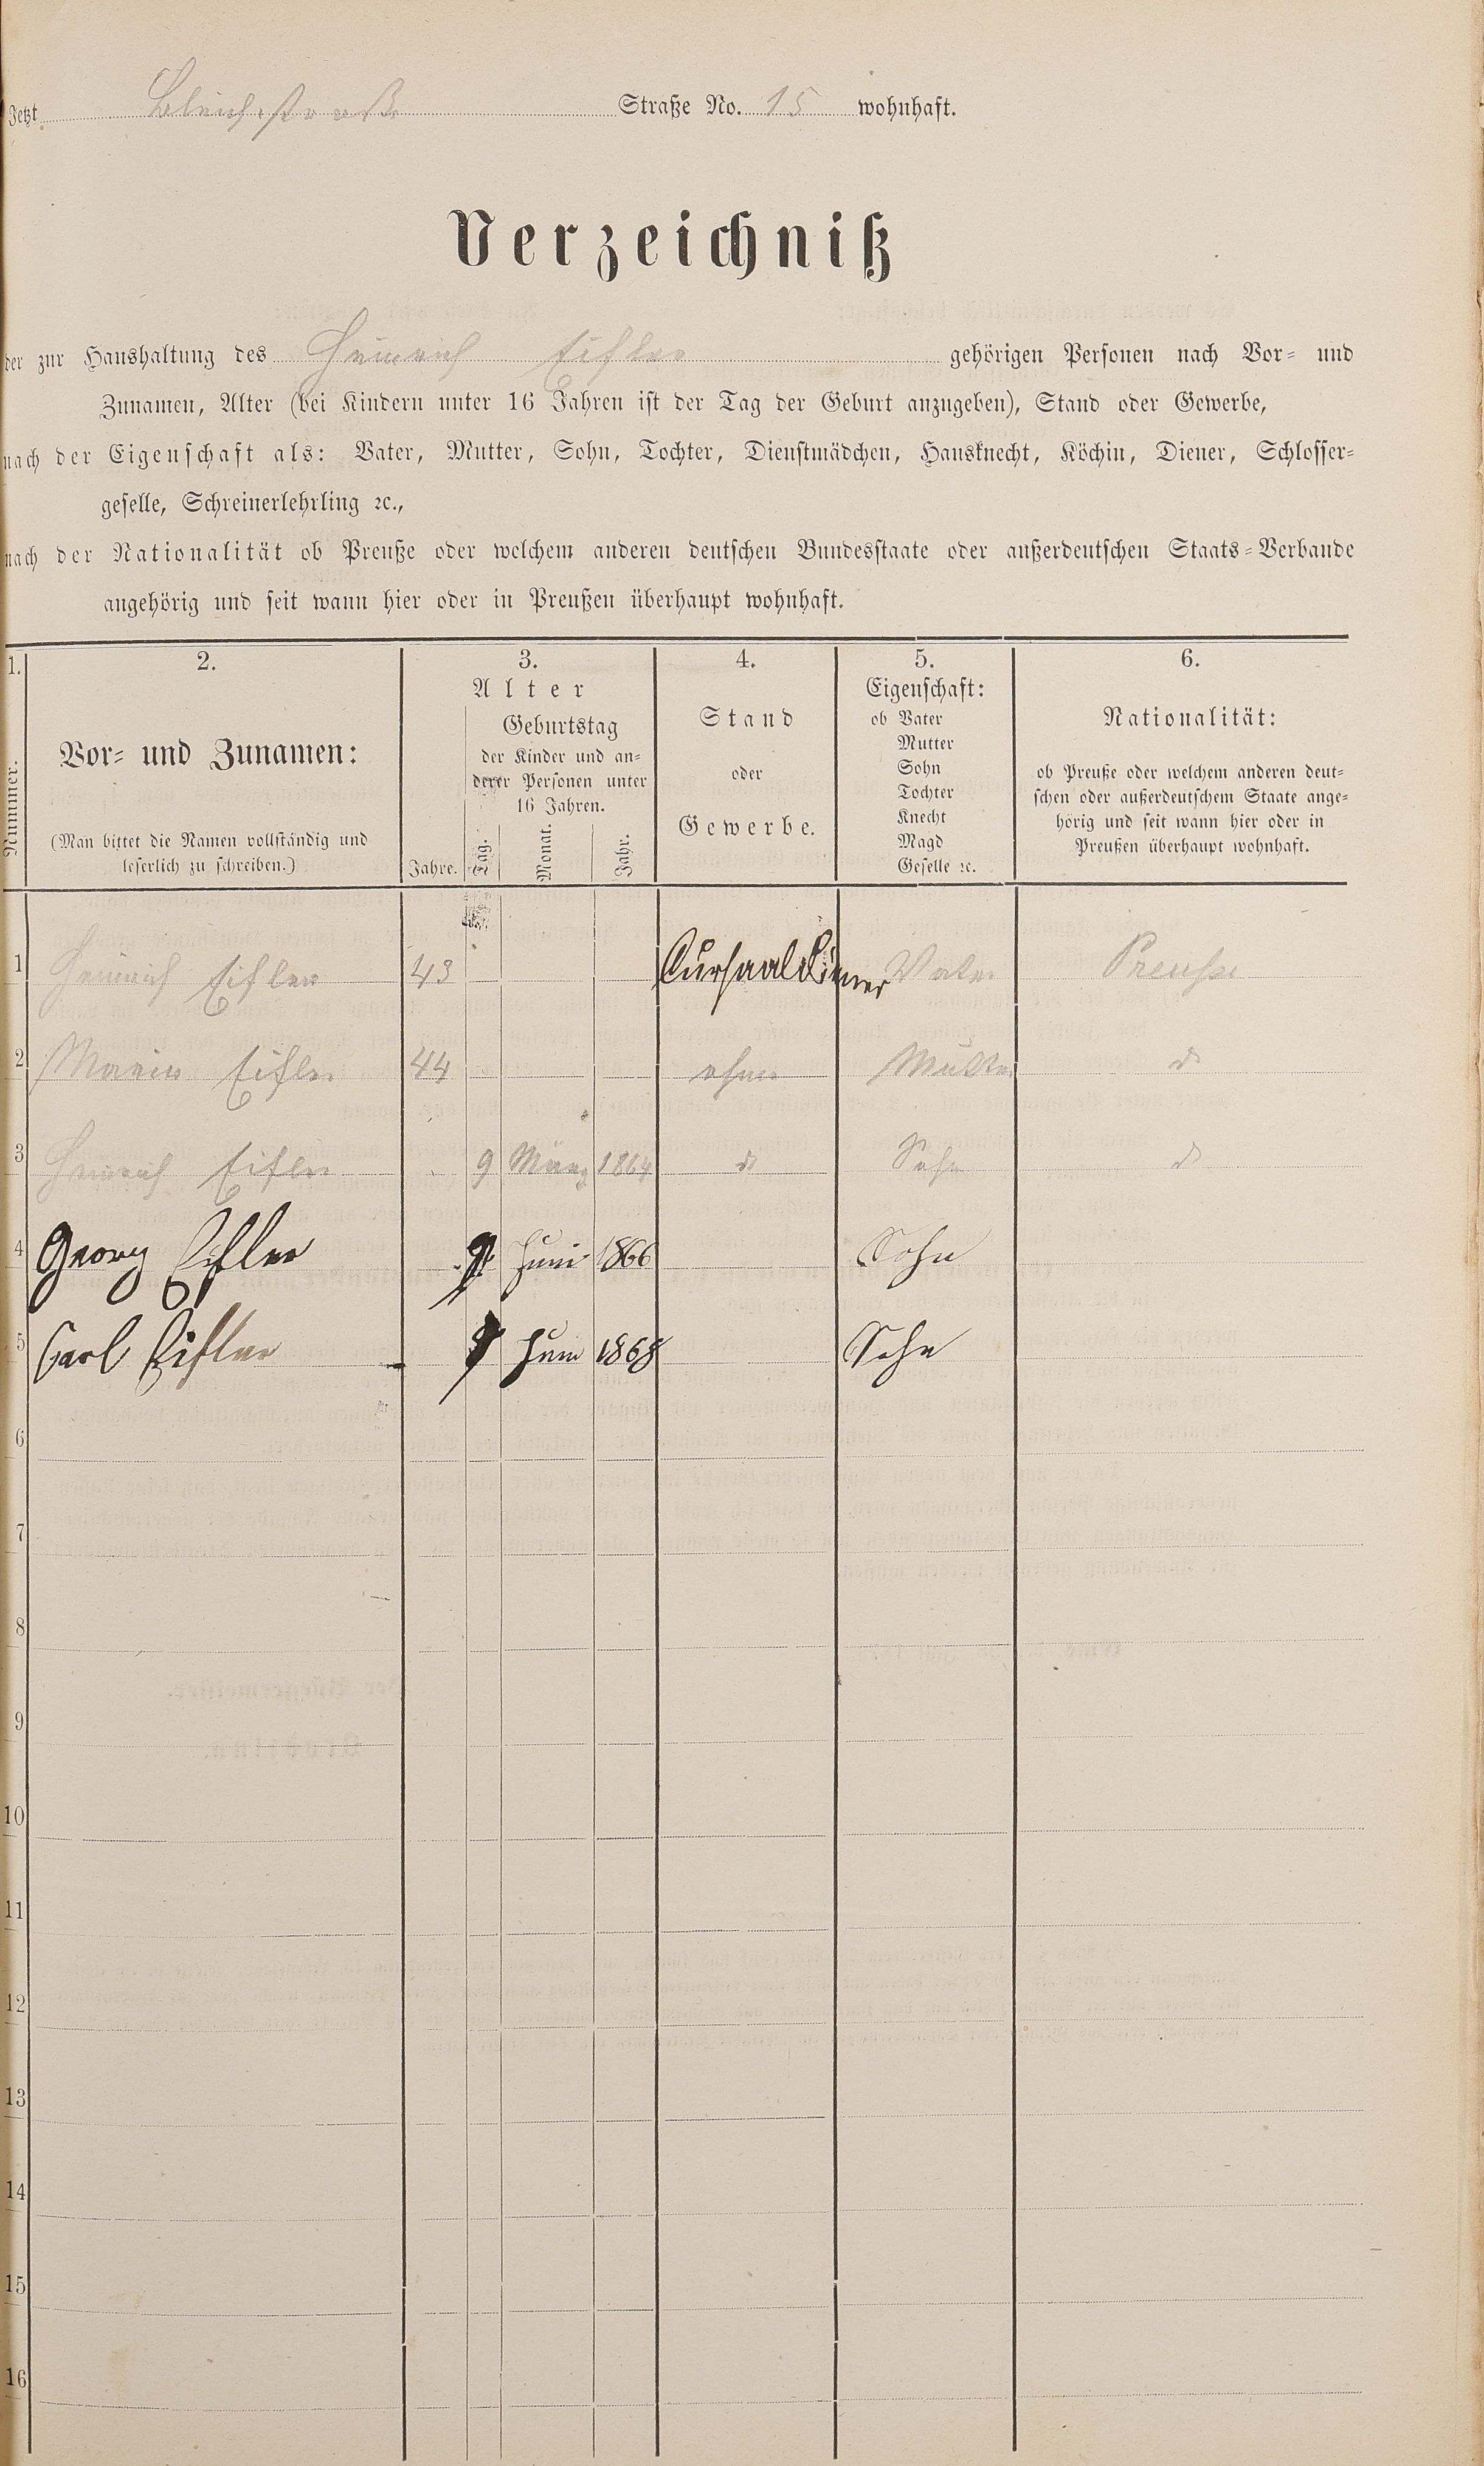 Jetzt Bleichstraße Straße No. 15 wohnhaft.
Verzeichniß
der zur Haushaltung des Heinrich Eifler gehörigen Personen nach Vor- und
Zunamen, Alter (bei Kindern unter 16 Jahren ist der Tag der Geburt anzugeben), Stand oder Gewerbe,
nach der Eigenschaft als: Vater, Mutter, Sohn, Tochter, Dienstmädchen, Hausknecht, Köchin, Diener, Schlosser-
geselle, Schreinerlehrling ꝛc.,
nach der Nationalität ob Preuße oder welchem anderen deutschen Bundesstaate oder außerdeutschen Staats-Verbande
angehörig und seit wann hier oder in Preußen überhaupt wohnhaft.
1. 2. 3. 4. 5. 6.
Nummer.
Vor- und Zunamen:
(Man bittet die Namen vollständig und
leserlich zu schreiben.)
Alter
Jahre.
Geburtstag
der Kinder und an-
derer Personen unter
16 Jahren.
Tag. Monat. Jahr.
Stand
oder
Gewerbe.
Eigenschaft:
ob Vater
Mutter
Sohn
Tochter
Knecht
Magd
Geselle ꝛc.
Nationalität:
ob Preuße oder welchem anderen deut-
schen oder außerdeutschem Staate ange-
hörig und seit wann hier oder in
Preußen überhaupt wohnhaft.
1 Heinrich Eifler 43 Cursaaldiener Vater Preuße
2 Marie Eifler 44 ohne Mutter do
3 Heinrich Eifler 9 März 1864 do Sohn do
4 Georg Eifler Juni 1866 Sohn
5 Carl Eifler Juni 1868 Sohn
6
7
8
9
10
11
12
13
14
15
16